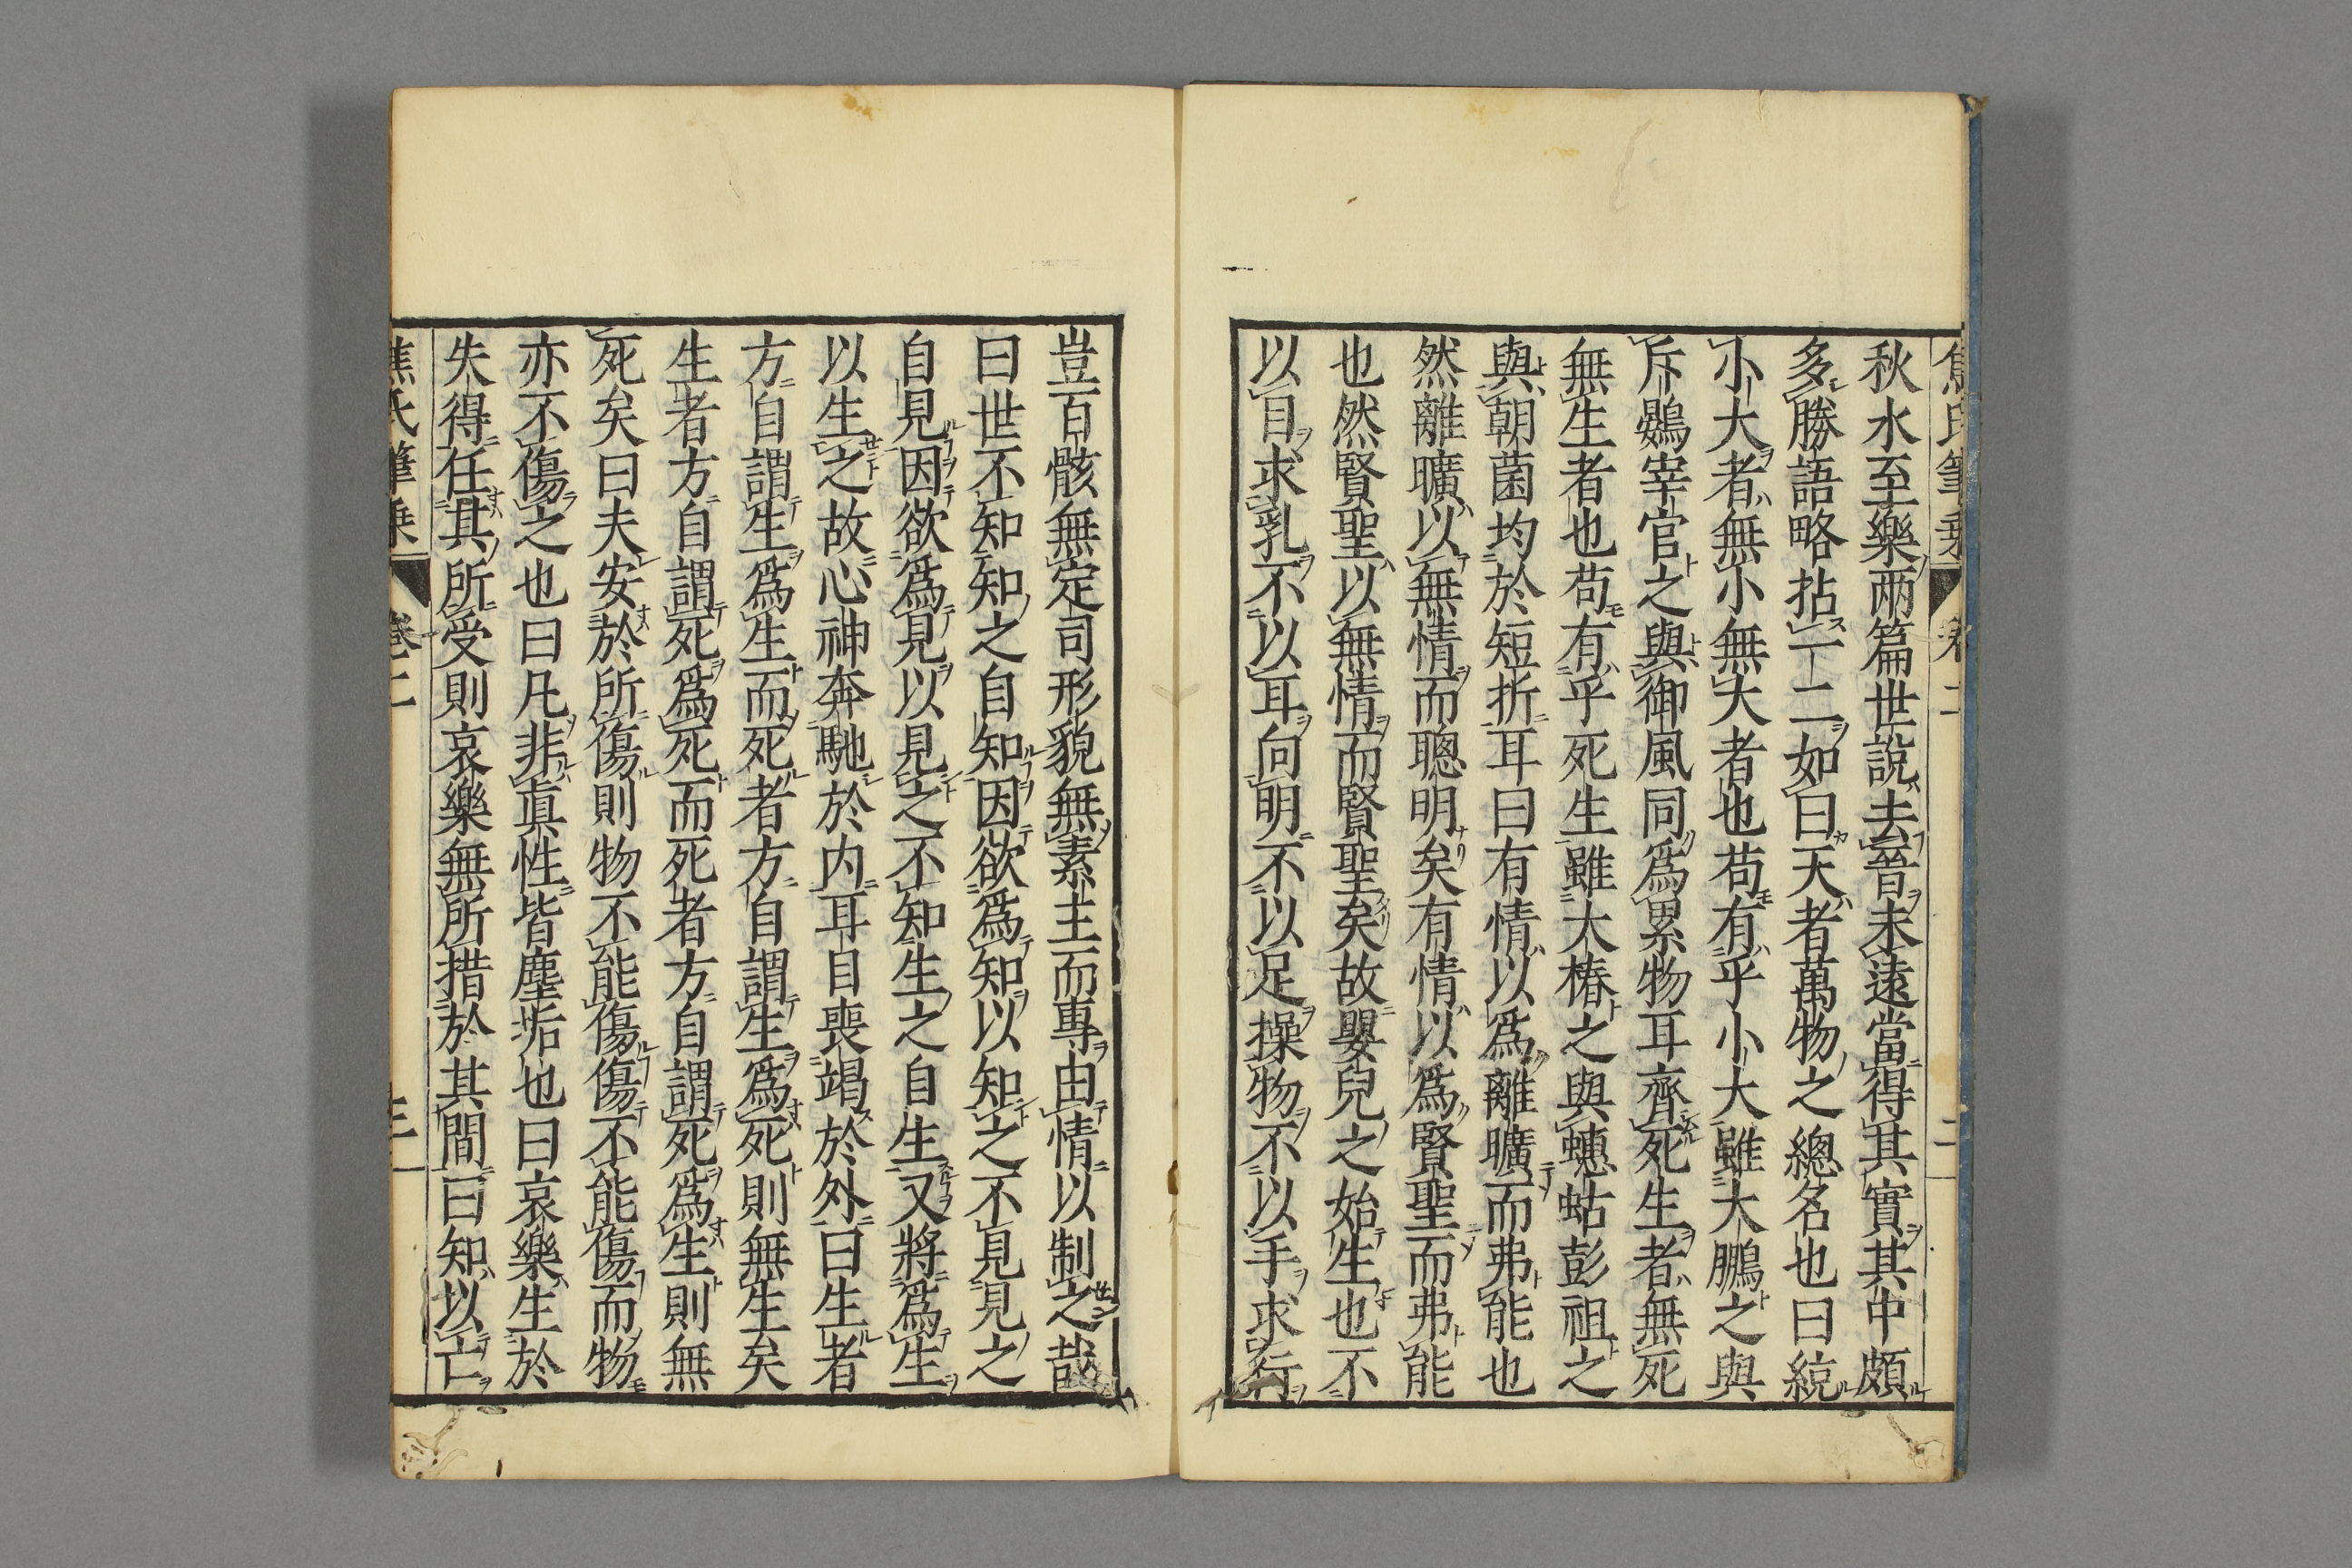 焦氏筆乗 卷二 二
秋水至樂兩篇世說去晉未遠當得其實其中頗
多勝語略拈一二如曰天者萬物之總名也曰統
小大者無小無大者也苟有乎小大雖大鵬之與
斥鷃宰官之與御風同爲累物耳齊死生者無死
無生者也苟有乎死生雖大椿之與蟪蛄彭祖之
與朝菌均於短折耳曰有情以爲離曠而弗能也
然離曠以無情而聰明矣有情以爲賢聖而弗能
也然賢聖以無情而賢聖矣故嬰兒之始生也不
以目求乳不以耳向明不以足操物不以手求行
豈百骸無定司形貌無素主而專由情以制之哉
曰世不知知之自知因欲爲知以知之不見見之
自見因欲爲見以見之不知生之自生又將爲生
以生之故心神奔馳於内耳目喪竭於外曰生者
方自謂生爲生而死者方自謂生爲死則無生矣
生者方自謂死爲死而死者方自謂死爲生則無
死矣曰夫安於所傷則物不能傷傷不能傷而物
亦不傷之也曰凡非眞性皆塵垢也曰哀樂生於
失得任其所受則哀樂無所措於其間曰知以亡
焦氏筆乗 卷二